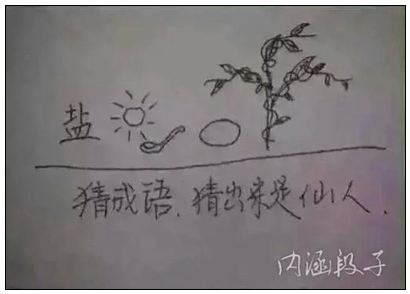 盐
猜成语，猜出来是仙人．
内涵段子